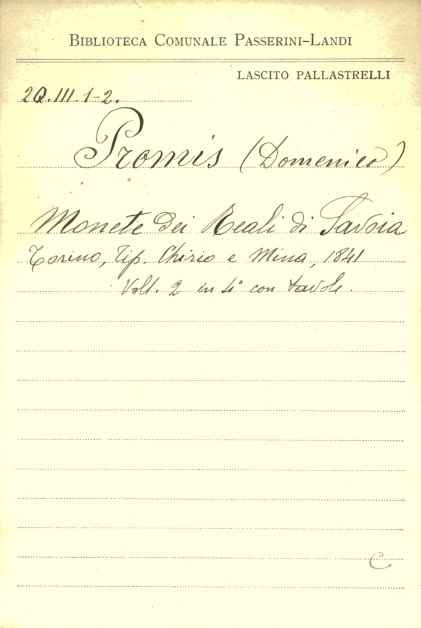 Biblioteca Comunale Passerini-Landi
LASCITO PALLASTRELLI
2Q.III.1-2.
Promis (Domenico)
Monete dei Reali di Savoia
Torino, Tip. Chirio e Mina, 1841
Voll. 2 in 4° con tavole.
C